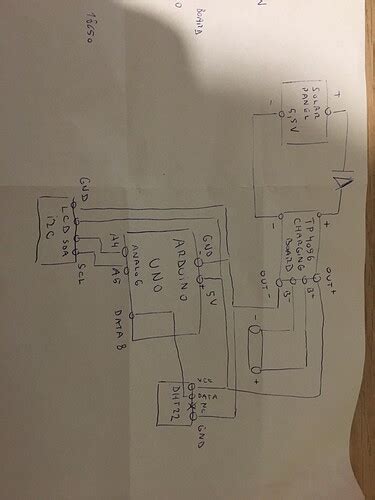 18650
BOARD
SOLAR
PANEL
5,5V
+
-
+
-
TP4056
CHARGING
BOARD
OUT+
B+
B-
OUT-
-
+
GND
SDA
SCL
LCD
I2C
A4
A5
ANALOG
UNO
ARDUINO
GND
-
+
5V
DATA 8
VCC
DATA
NC
GND
DHT22